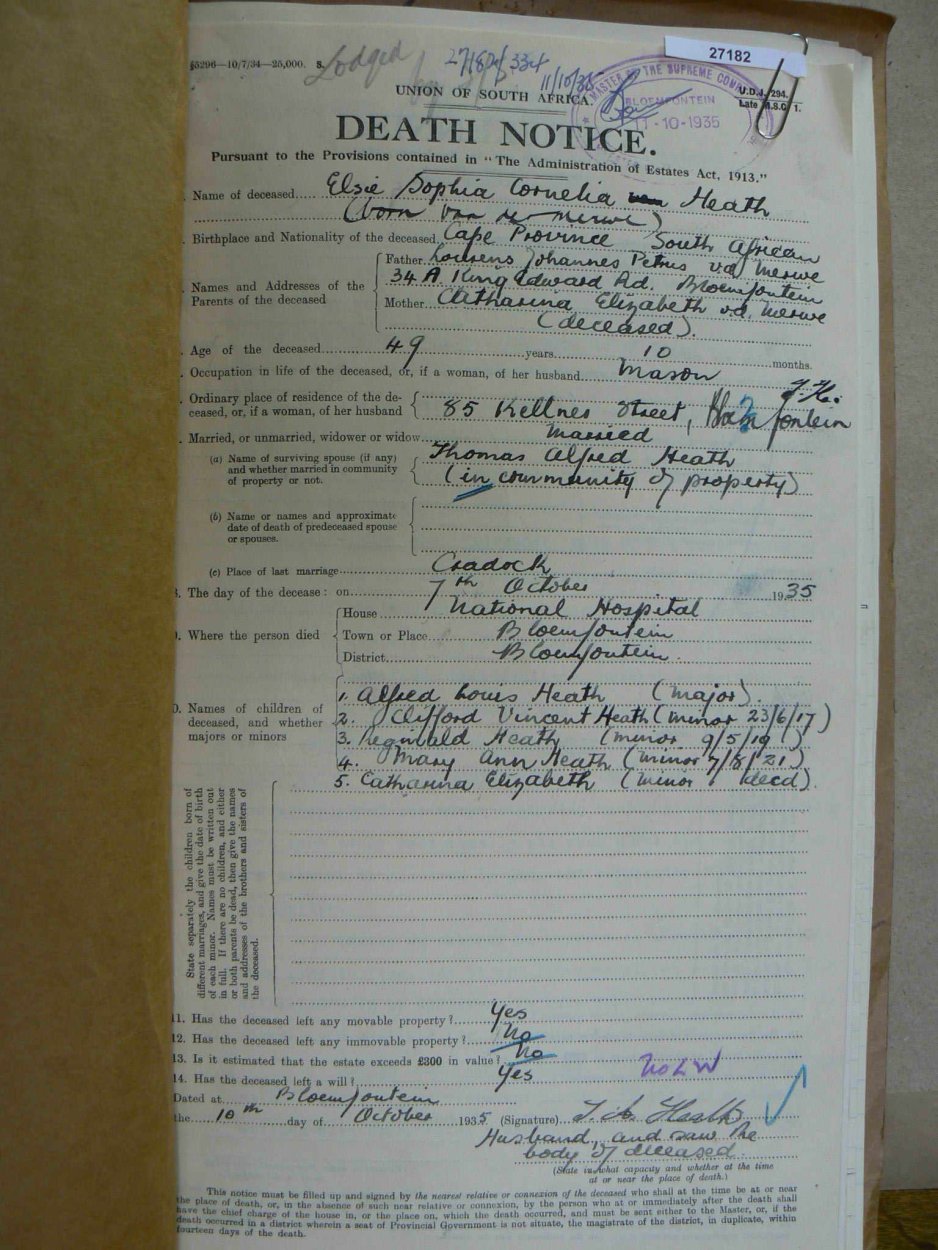 27182
§5296—10/7/34—25,000. S.
Lodged
27182/334
11/10/35
UNION OF SOUTH AFRICA.
MASTER OF THE SUPREME COURT
BLOEMFONTEIN
11-10-1935
U.D.J. 294.
Late M.S.C. 1.
DEATH NOTICE.
Pursuant to the Provisions contained in "The Administration of Estates Act, 1913."
Name of deceased Elsie Sophia Cornelia Heath
(born van der Merwe)
Birthplace and Nationality of the deceased Cape Province South African
Names and Addresses of the Parents of the deceased
Father Lourens Johannes Petrus vd Merwe
34A King Edward Rd. Bloemfontein
Mother Catharina Elizabeth v.d. Merwe
(deceased).
Age of the deceased 49 years 10 months.
Occupation in life of the deceased, or, if a woman, of her husband Mason
Ordinary place of residence of the de-
ceased, or, if a woman, of her husband
85 Kellner Street, Bloemfontein
Married, or unmarried, widower or widow married
(a) Name of surviving spouse (if any)
and whether married in community
of property or not.
Thomas Alfred Heath
(in community of property)
(b) Name or names and approximate
date of death of predeceased spouse
or spouses.
(c) Place of last marriage Cradock
The day of the decease: on 7th October 1935
Where the person died
House National Hospital
Town or Place Bloemfontein
District Bloemfontein.
0. Names of children of
deceased, and whether
majors or minors
1. Alfred Louis Heath (major).
2. Clifford Vincent Heath (minor 23/6/17)
3. Reginald Heath (minor 9/5/19)
4. Mary Ann Heath (minor 7/8/21)
5. Catharina Elizabeth (minor decd).
State separately the children born of
different marriages, and give the date of birth
of each minor. Names must be written out
in full. If there are no children, and either
or both parents be dead, then give the names
and addresses of the brothers and sisters of
the deceased.
11. Has the deceased left any movable property? Yes
12. Has the deceased left any immovable property? No
13. Is it estimated that the estate exceeds £300 in value? No
14. Has the deceased left a will? Yes
Dated at Bloemfontein
the 10th day of October 1935 (Signature) T. A. Heath
Husband, and saw the
body of deceased.
(State in what capacity and whether at the time
at or near the place of death.)
This notice must be filled up and signed by the nearest relative or connexion of the deceased who shall at the time be at or near
the place of death, or, in the absence of such near relative or connexion, by the person who at or immediately after the death shall
have the chief charge of the house in, or the place on, which the death occurred, and must be sent either to the Master, or, if the
death occurred in a district wherein a seat of Provincial Government is not situate, the magistrate of the district, in duplicate, within
fourteen days of the death.